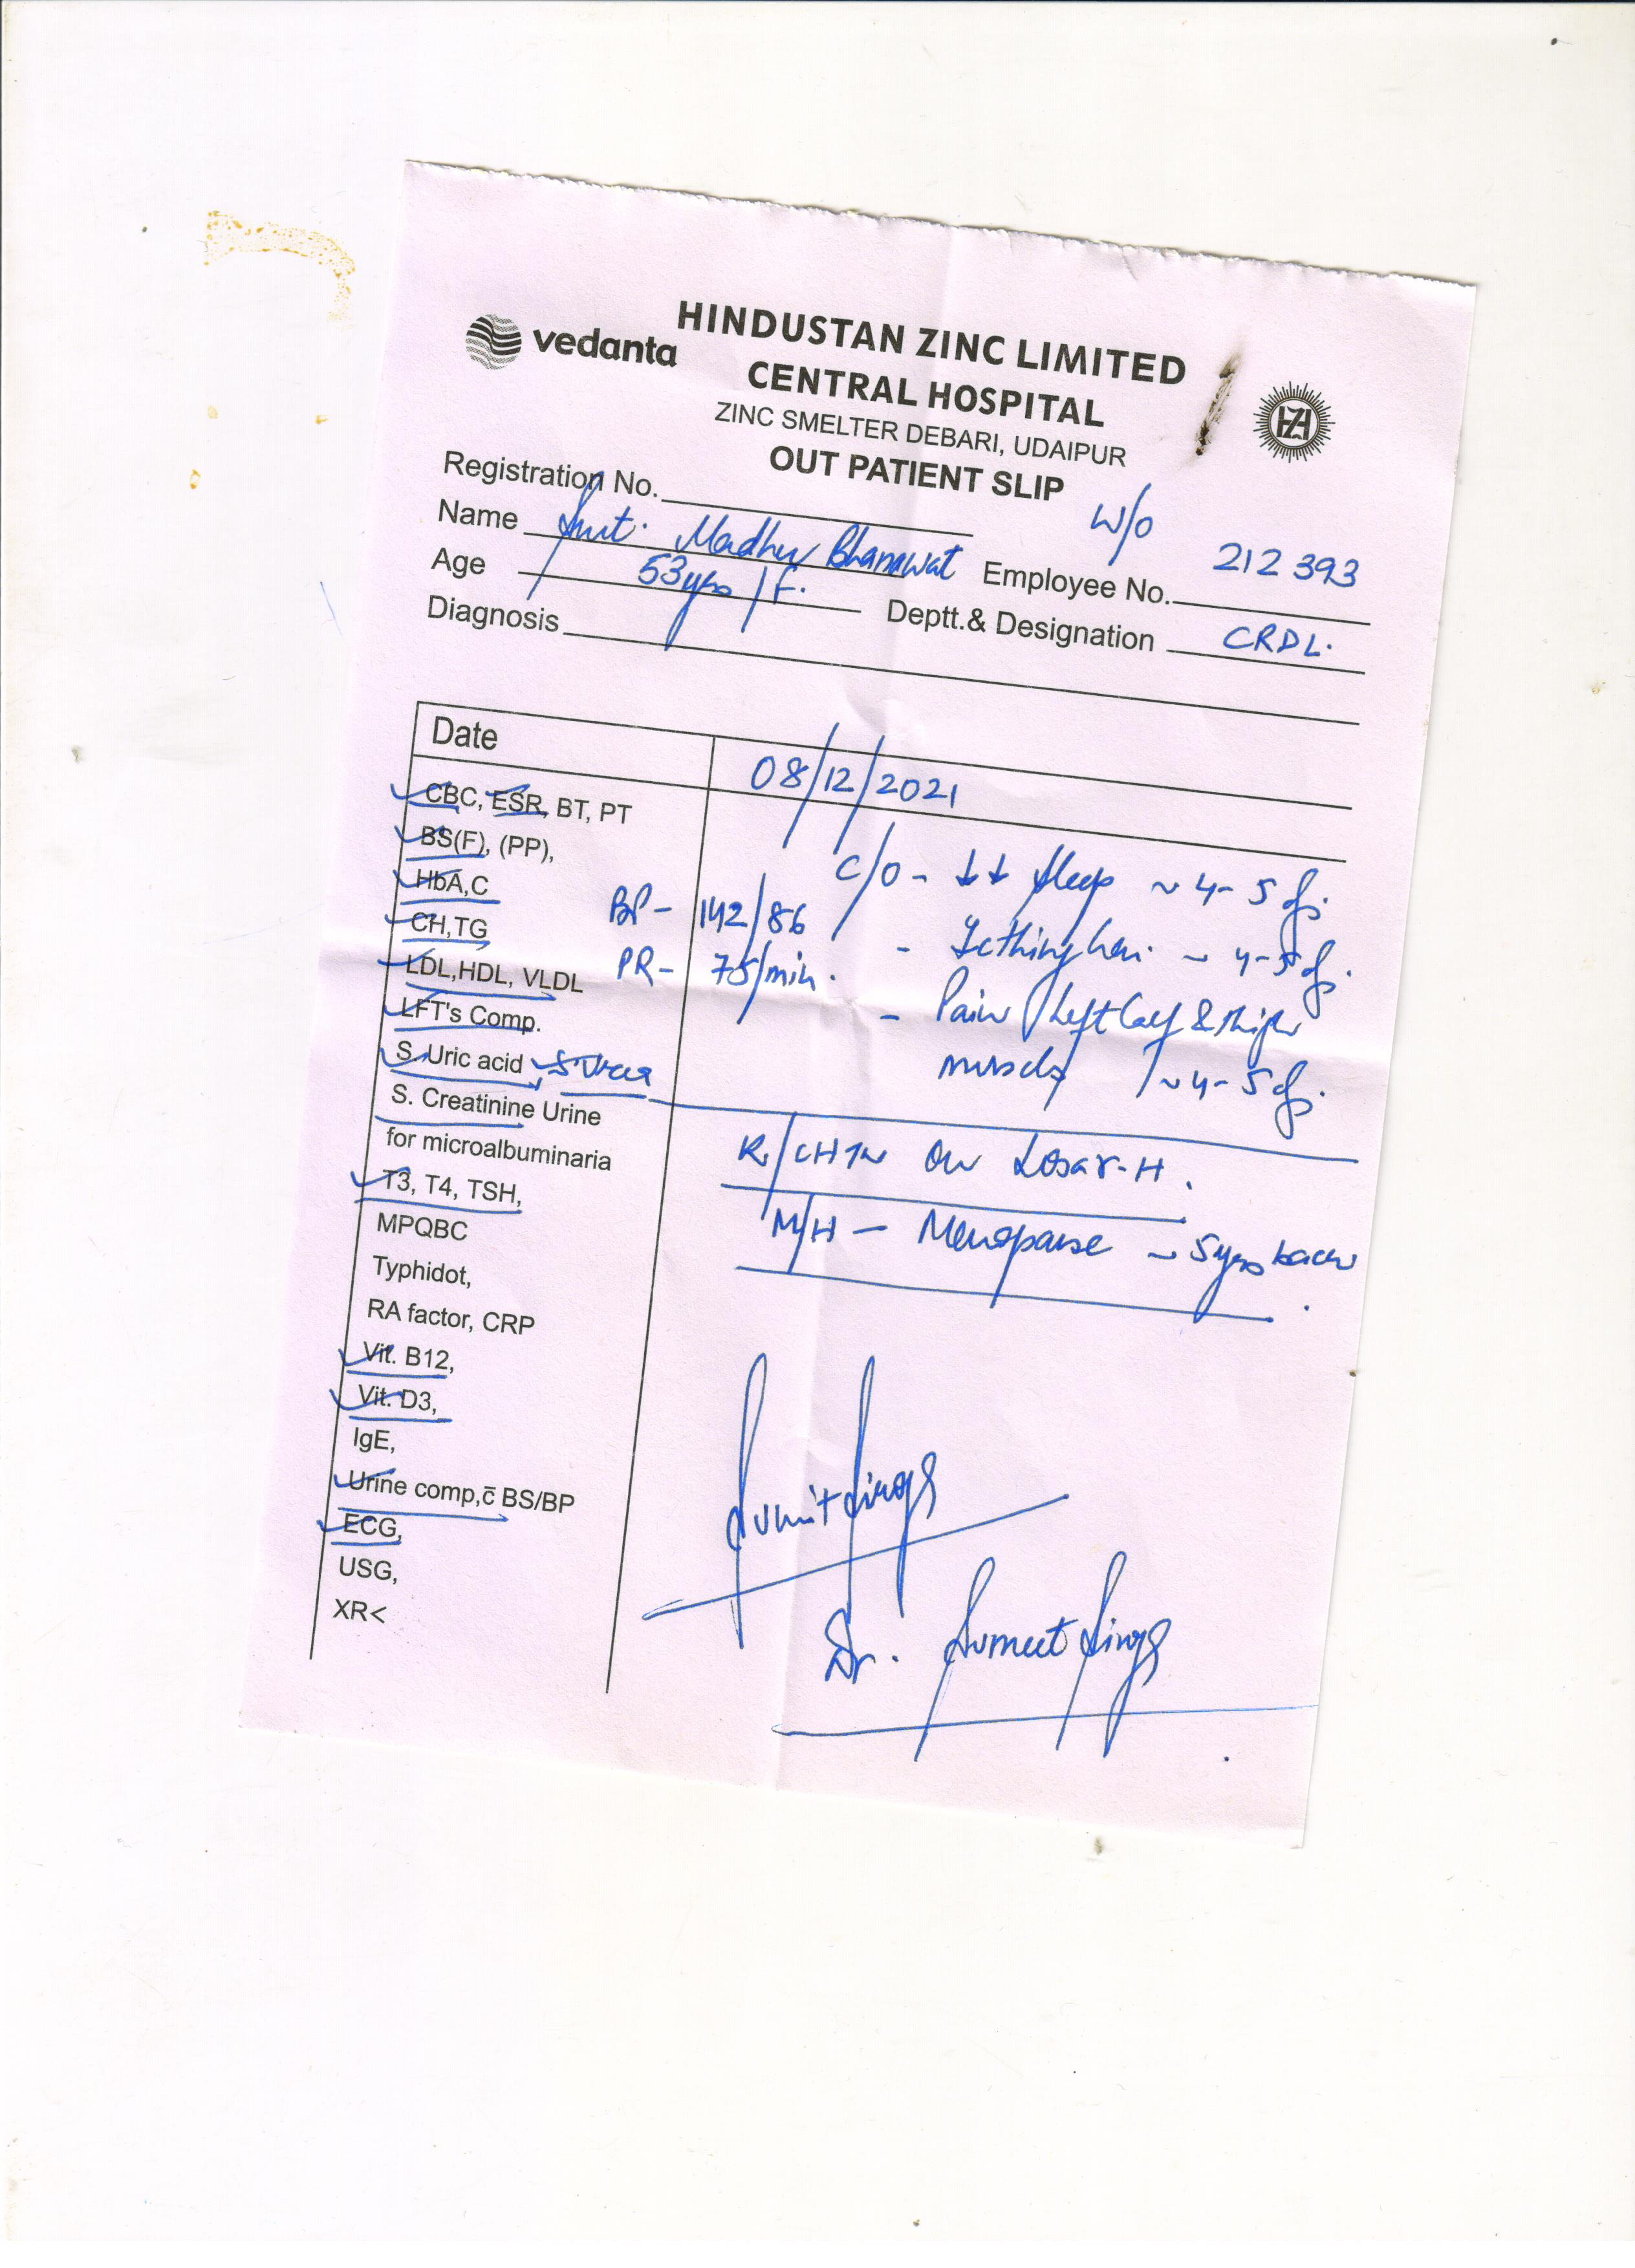 vedanta
HINDUSTAN ZINC LIMITED
CENTRAL HOSPITAL
ZINC SMELTER DEBARI, UDAIPUR
OUT PATIENT SLIP
Registration No.
W/o
Name Smt. Madhu Bhanawat Employee No. 212393
Age 53yrs/F. Deptt.& Designation CRDL.
Diagnosis
Date 08/12/2021
CBC, ESR, BT, PT
BS(F), (PP),
C/O - ↓↓ Sleep ~ 4-5
HbA,C
BP- 142/86
CH,TG
- ~ 4-5
LDL,HDL, VLDL
PR- 75/min.
LFT's Comp.
- Pain Left Calf & thigh
S. Uric acid S. Urea
muscle ~ 4-5
S. Creatinine Urine
for microalbuminaria
K/C HTN on Losar-H.
T3, T4, TSH,
M/H - Menopause ~ 5yrs back
MPQBC
Typhidot,
RA factor, CRP
Vit. B12,
Vit. D3,
IgE,
Urine comp,c̄ BS/BP
Sumit Singh
ECG,
USG,
XR<
Dr. Sumeet Singh